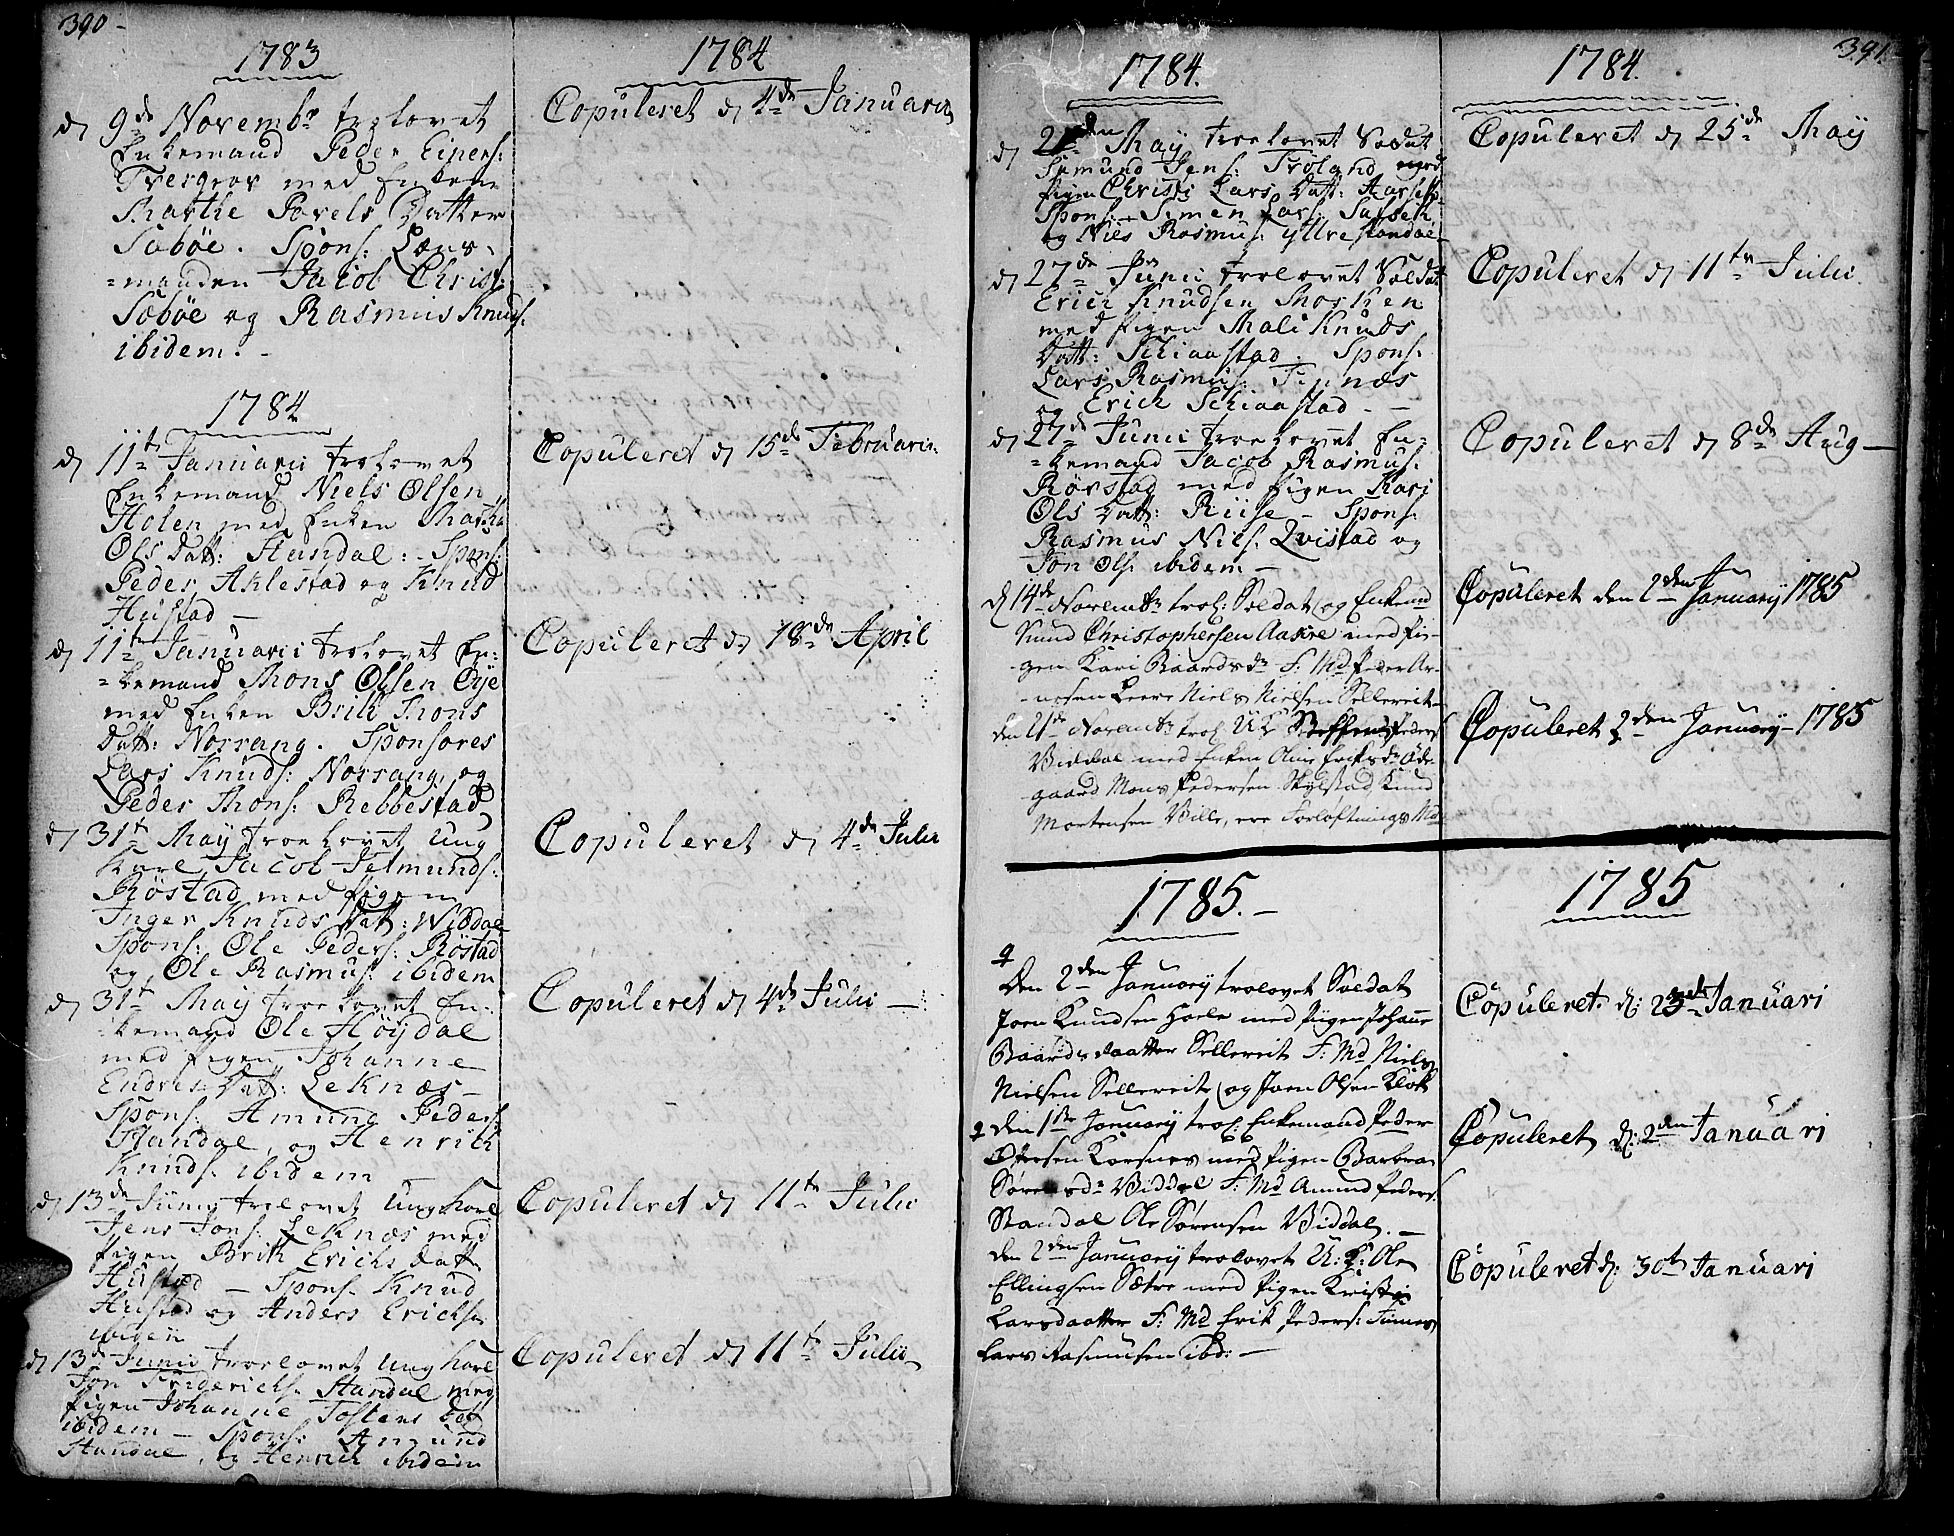 390-
1783
d 9de Novembr trolovet
Enkemand Peder Einers:
Tvergrov med Enken
Marthe Povels Datter
Sæbøe. Spons: Læns-
=manden Jacob Christ:
Sæbøe og Rasmus Knuds:
ibidem. -
1784
d 11te Januarii trolovet
Enkemand Niels Olsen
Holen med Enken Martha
Ols Datt: Standal: - Spons:
Peder Aklestad og Knud
Hustad -
d 11te Januarii trolovet En-
=kemand Mons Olsen Øye
med Enken Brit Mons
Datt: Norrang. Sponsores
Lars Knuds: Norrang, og
Peder Mons: Rebbestad
d 31te May troelovet Ung
Karl Jacob Jetmunds:
Røstad med Pigen
Inger Knuds Datt: Widdal
Spons: Ole Peders: Røstad
og Ole Rasmus: ibidem
d 31te May troelovet En-
=kemand Ole Høydal
med Pigen Johanne
Endres Datt: Leknæs -
Spons: Amund Peders:
Standal, og Henrich
Knuds: ibidem
d 13de Junii trolovet Ung Karl
Jens Jons: Leknæs med
Pigen Brit Erichs Datt.
Hustad - Spons. Knud
Hustad og Anders Erichs:
ibidem
d 13de Junii troelovet Ung Karl
Jon Friderichs: Standal med
Pigen Johanne Tostens Dat
ibidem - Spons: Amund
Standal, og Henrich ibidem
1784
Copuleret d 4de Januarii
Copuleret d 15de Februarii.
Copuleret d 18de April
Copuleret d 4de Julii
Copuleret d 4de Julii -
Copuleret d 11te Julii
Copuleret d 11te Julii
1784.
d 2den May troelovet Soldat
Semund Jens: Troland med
Pigen Christi Lars Datt: Aarseth
Spons: - Simen Lars: Sætreh
og Niels Rasmus: Yttrestandal
d 27de Junii trolovet Soldat
Erich Knudsen Morken
med Pigen Mali Knuds
Datt: Schiaastad. Spons.
Lars Rasmus: Finnæs
og Erich Schiaastad - -
d 27de Junii troelovet En-
=kemand Jacob Rasmus:
Røvstad med Pigen Kari
Ols Datt: Riise - Spons:
Rasmus Niels: Qvistad og
Jon Ols: ibidem -
d 14de Novembr trol: Soldat og Enkemd
Knud Christophersen Aasæe med Pi-
gen Kari Baards dr F: Md Peder Ar-
nesen Leere Niels Nielsen Sellereit -
den 21de Novembr trol: UK Steffen Peders
Viddal med Enken Anne Eriksdr Øde-
gaard Mons Pedersen Skylstad, Knud
Mortensen Bille, ere Forløftnings Md
1785. -
Den 2den January trolovet Soldat
Joen Knudsen Haele med Pigen Johanne
Baards daatter Sellereit F: Md Niels
Nielsen Sellereit og Joen Olsen Klok
den 1ste January trol: Enkemand Peder
Ottersen Korsnes med Pigen Barbra
Sørensdr Viddal F: Md Amund Peders:
Standal Ole Sørensen Viddal. -
den 2den January trolovet U: K: Ole
Ellingsen Sætre med Pigen Kristi
Larsdaatter F: Md Erik Peders: Finnes,
Lars Rasmusen ibd: -
391.
1784.
Copuleret d 25de May
Copuleret d 11te Julii
Copuleret d 8de Aug -
Copuleret den 2den January 1785
Copuleret 2den January - 1785
1785
Copuleret. d: 23de Januari
Copuleret d: 2den Januari
Copuleret d: 30te Januari